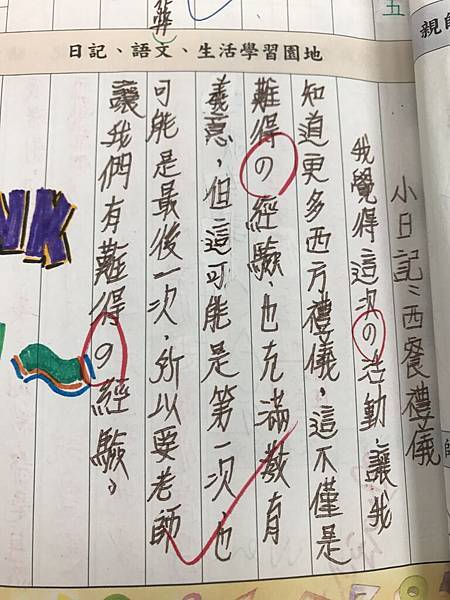 五
親師
日記、語文、生活學習園地
小日記:西餐禮儀
我覺得這次の活動,讓我
知道更多西方禮儀,這不僅是
難得の經驗,也充滿有
義意,但這可能是第一次,也
可能是最後一次,所以要老師
讓我們有難得の經驗。
NK
師